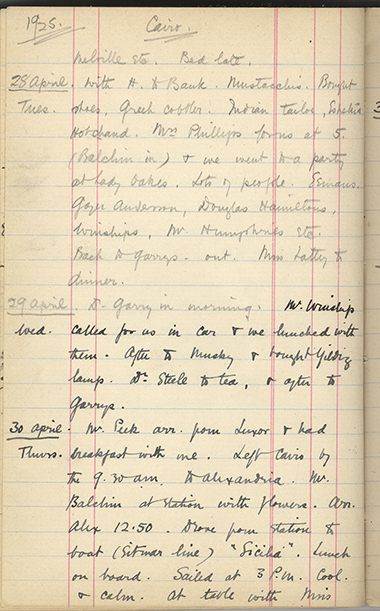 1925. Cairo.
Melville etc. Bed late.
28 April. With H. to Bank. Mustacchi's. Bought
Tues. shoes, Greek cobbler. Indian tailor,
Hotchand. Mrs Phillips for us at 5.
(Balchin in) & we went to a party
at Lady Oakes. Lots of people.
Gayer Anderson, Douglas Hamiltons,
Winships, Mr Humphreys etc.
Back to Garrys. out. Miss Lattey to
dinner.
29 April. Dr Garry in morning. Mr. Winship
Wed. called for us in car & we lunched with
them. After to Musky & bought
lamp. Dr Steele to tea, & after to
Garrys.
30 April. Mr. Peck arr. from Luxor & had
Thurs. breakfast with me. Left Cairo by
the 9.30 am. to Alexandria. Mr.
Balchin at station with flowers. Arr.
Alex 12.50. Drove from station to
boat (Sitmar line) "Sicilia". Lunch
on board. Sailed at 3 P.M. Cool
& calm. At table with Miss